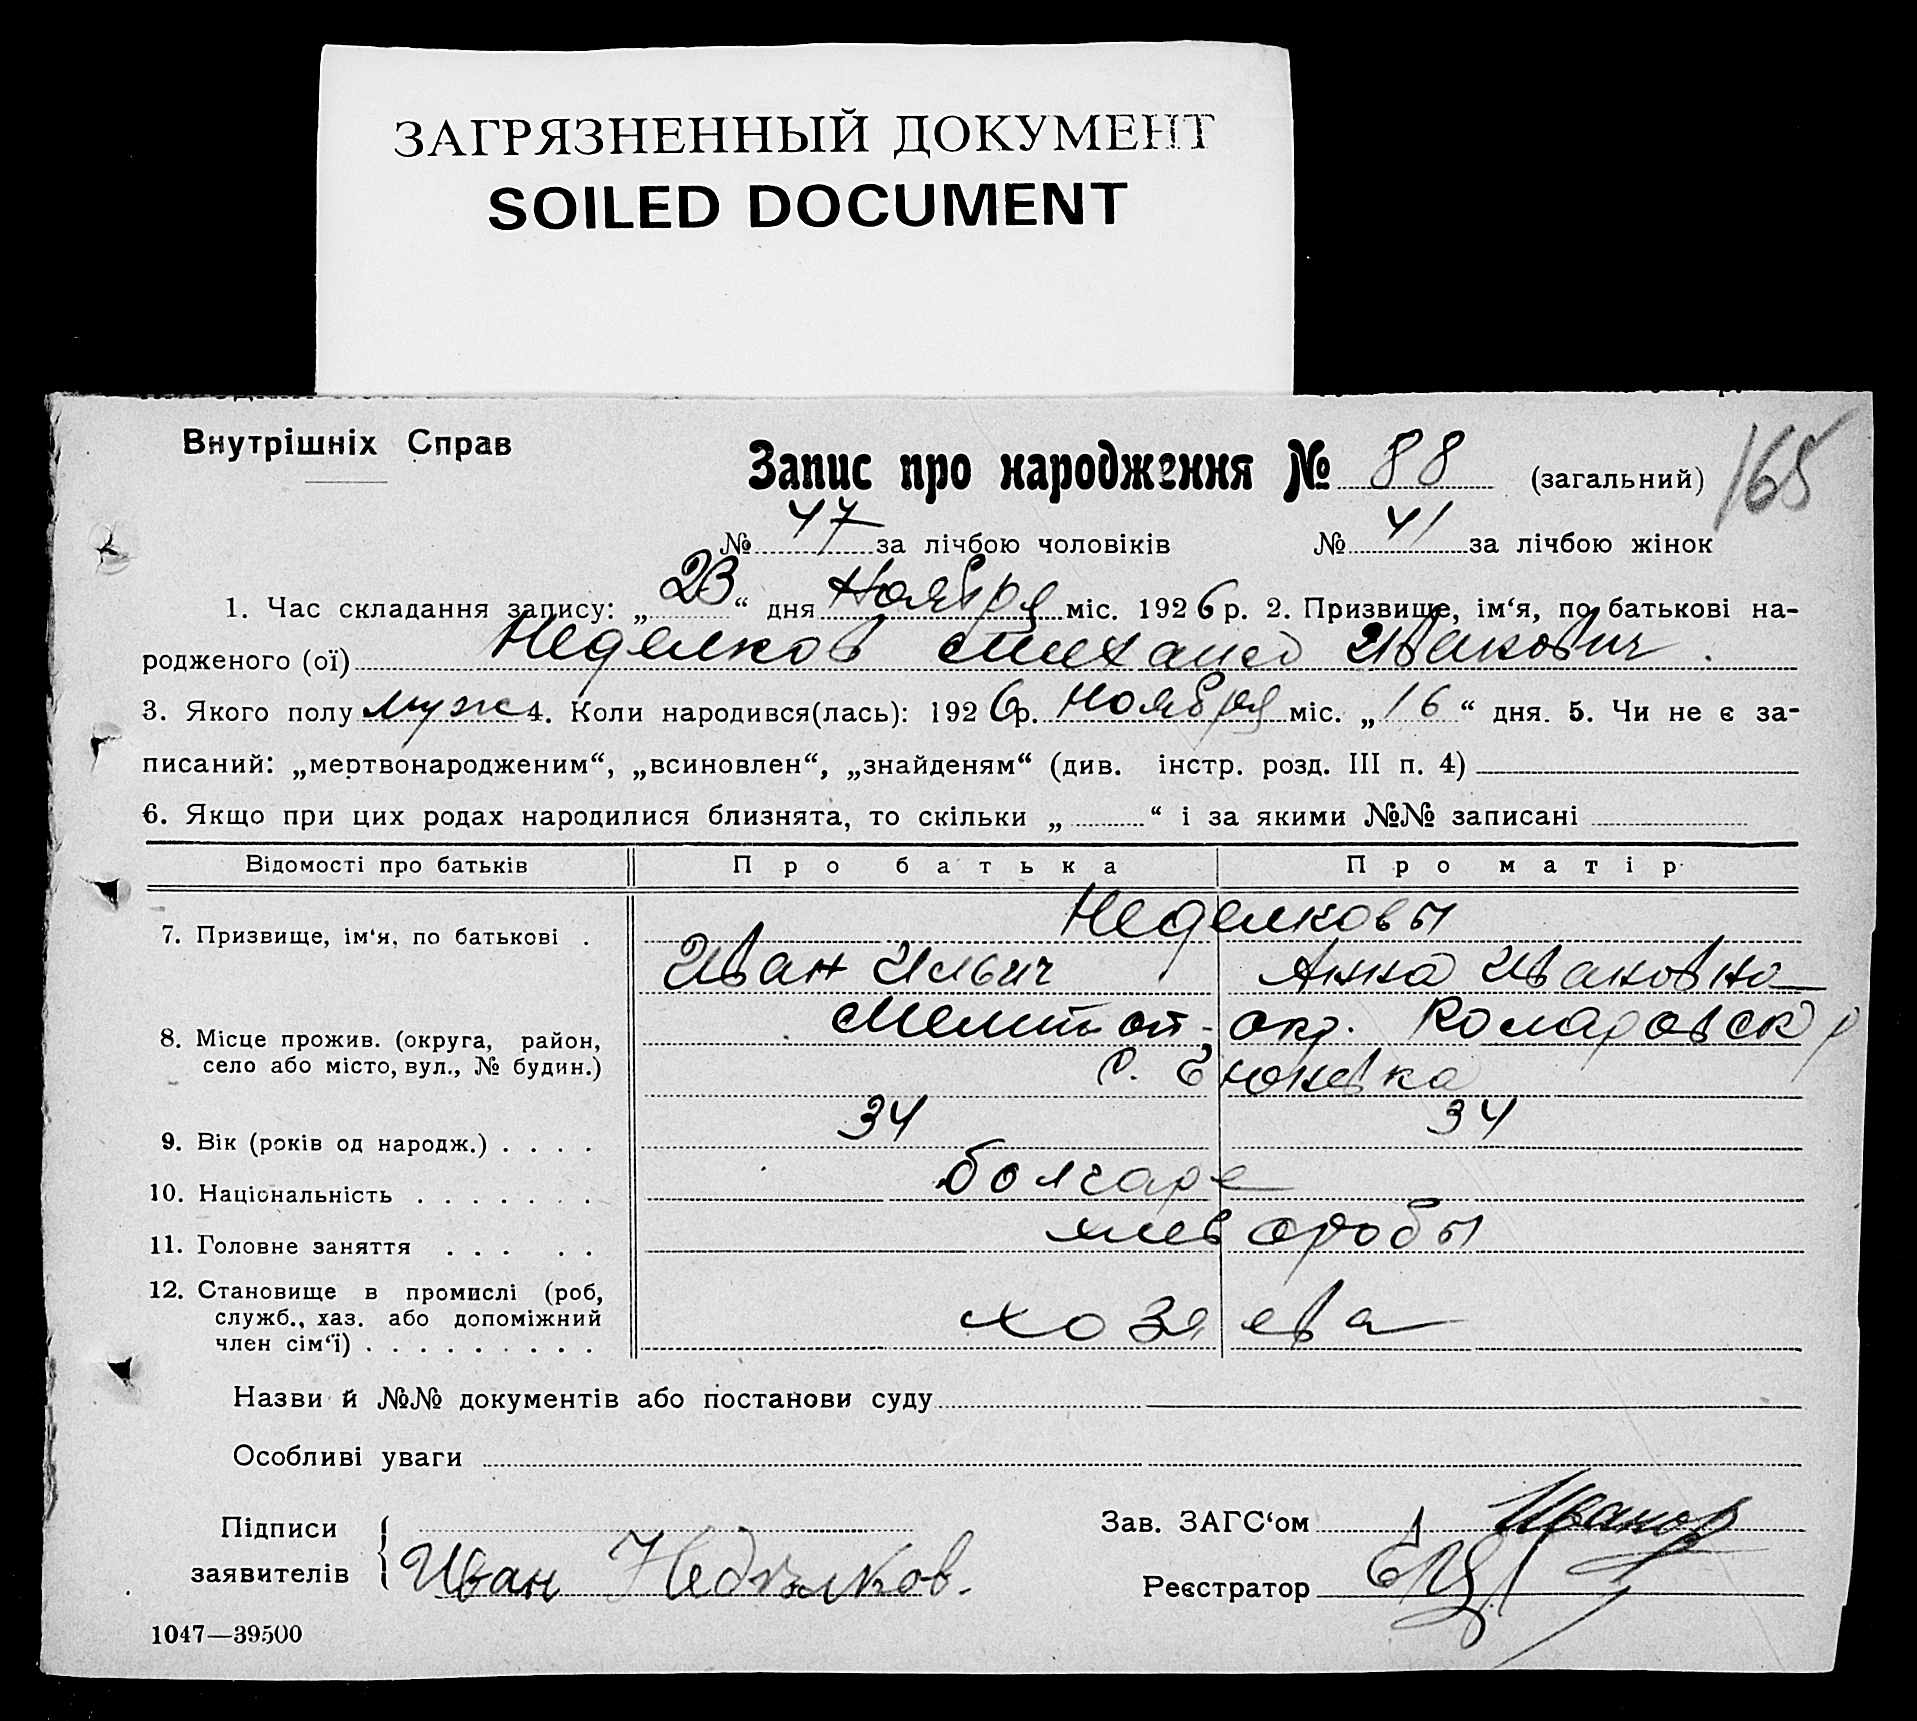 ЗАГРЯЗНЕННЫЙ ДОКУМЕНТ
SOILED DOCUMENT
Внутрішніх Справ
Запис про народження № 88 (загальний) 165
№ 47 за лічбою чоловіків № 41 за лічбою жінок
1. Час складання запису: „23“ дня Ноября міс. 1926 р. 2. Призвище, ім‘я, по батькові на-
родженого (ої) Неделков Михаил Иванович.
3. Якого полу муж 4. Коли народився(лась): 1926 р. Ноября міс. „16“ дня. 5. Чи не є за-
писаний: „мертвонародженим“, „всиновлен“, „знайденям“ (див. інстр. розд. III п. 4)
6. Якщо при цих родах народилися близнята, то скільки „ “ і за якими №№ записані
Відомості про батьків Про батька Про матір
7. Призвище, ім‘я, по батькові . Неделковы
Иван Ильич Анна Ивановна
8. Місце прожив. (округа, район, Мелитоп. окр. Комаровск р
село або місто, вул., № будин.) с.
9. Вік (років од народж.) . . . . 34 34
10. Національність . . . . . . . болгаре
11. Головне заняття . . . . . хлеборобы
12. Становище в промислі (роб,
служб., хаз. або допоміжний хозяева
член сім‘ї) . . . . . . . . .
Назви й №№ документів або постанови суду
Особливі уваги
Підписи Зав. ЗАГС‘ом Иванов
заявителів Иван Неделков. Реєстратор
1047—39500